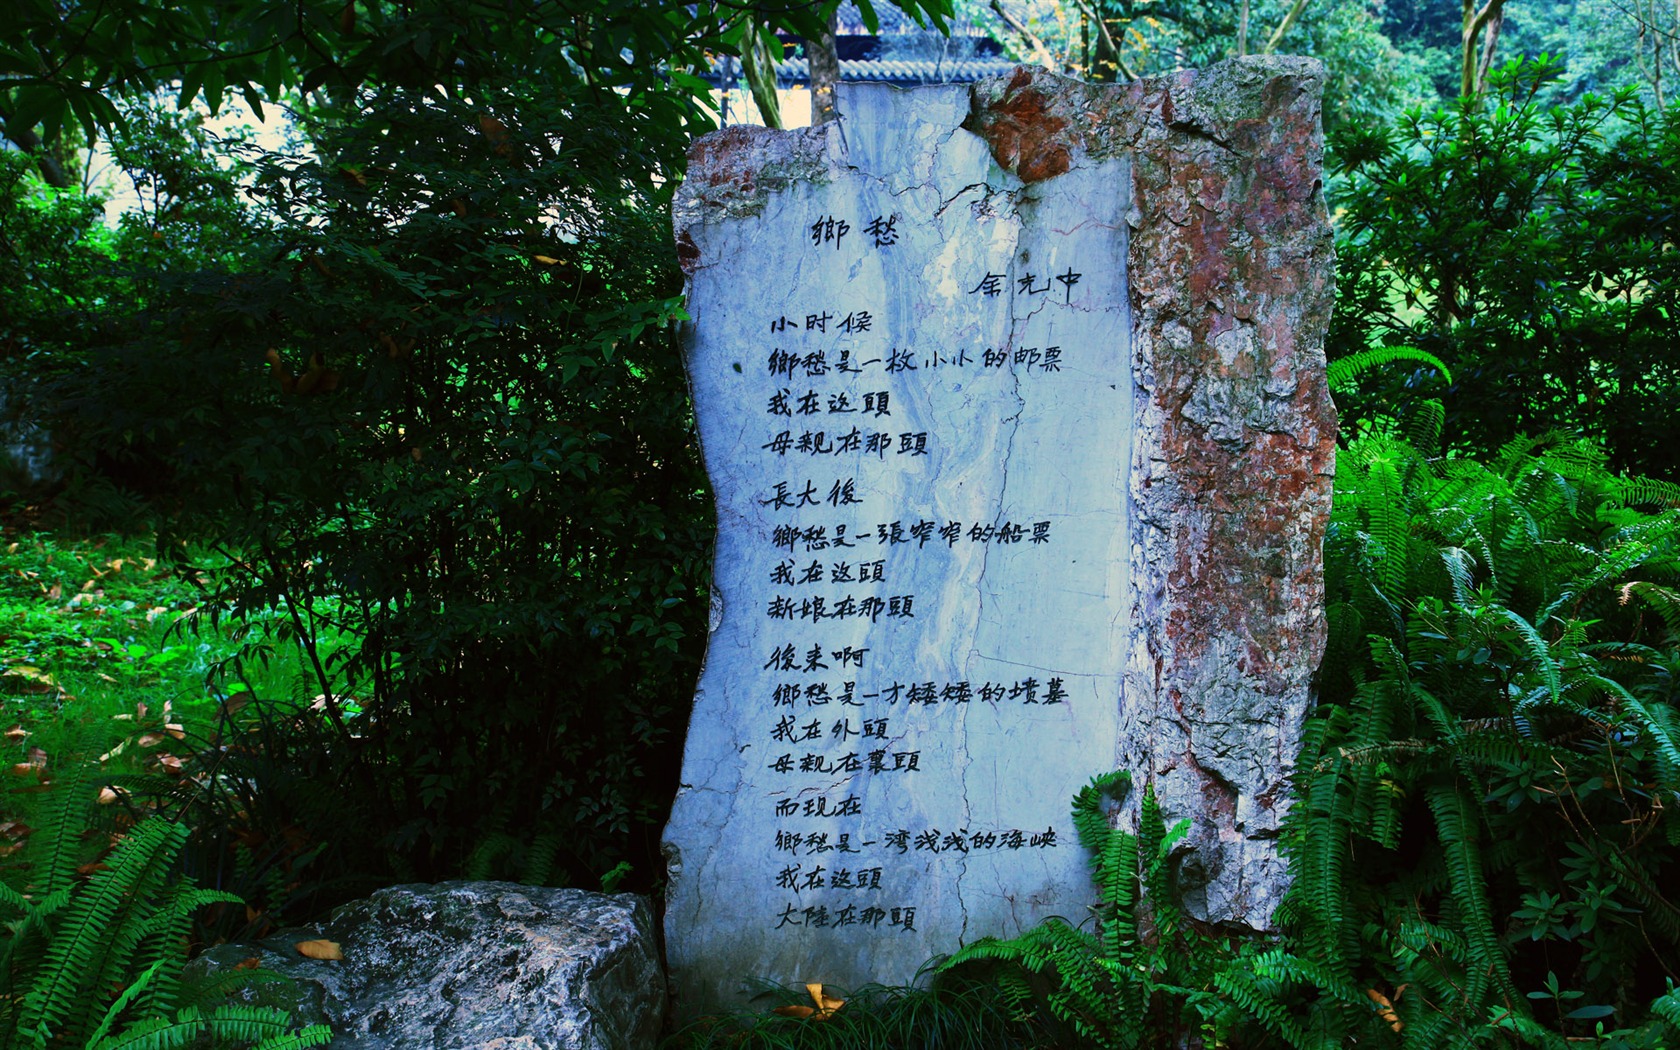 鄉愁
余光中
小时候
鄉愁是一枚小小的邮票
我在这頭
母親在那頭
長大後
鄉愁是一張窄窄的船票
我在这頭
新娘在那頭
後来啊
鄉愁是一方矮矮的墳墓
我在外頭
母親在裏頭
而现在
鄉愁是一湾浅浅的海峡
我在这頭
大陸在那頭